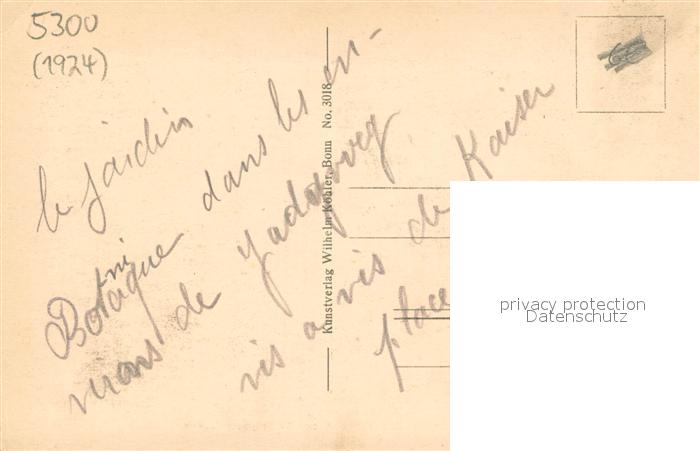 5300
(1924)
le jardin
Botanique dans les en-
virons de
vis a vis de Kaiser
place
Kunstverlag Wilhelm Köhler, Bonn No. 3018
privacy protection
Datenschutz